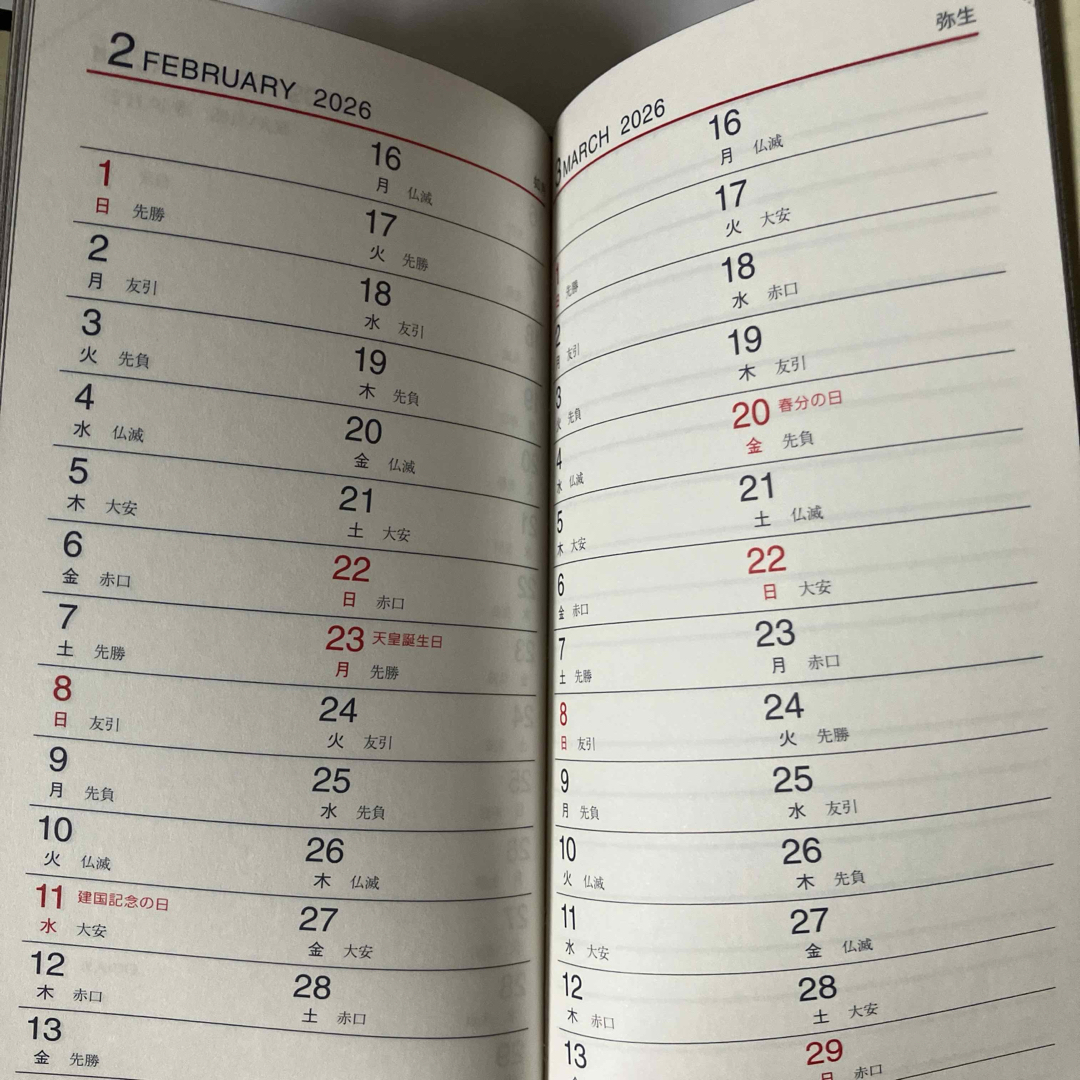 2 FEBRUARY 2026
1
日 先勝
2
月 友引
3
火 先負
4
水 仏滅
5
木 大安
6
金 赤口
7
土 先勝
8
日 友引
9
月 先負
10
火 仏滅
11 建国記念の日
水 大安
12
木 赤口
13
金 先勝
16
月 仏滅
17
火 先勝
18
水 友引
19
木 先負
20
金 仏滅
21
土 大安
22
日 赤口
23 天皇誕生日
月 先勝
24
火 友引
25
水 先負
26
木 仏滅
27
金 大安
28
土 赤口
3 MARCH 2026
弥生
1
日 先勝
2
月 友引
3
火 先負
4
水 仏滅
5
木 大安
6
金 赤口
7
土 先勝
8
日 友引
9
月 先負
10
火 仏滅
11
水 大安
12
木 赤口
13
16
月 仏滅
17
火 大安
18
水 赤口
19
木 友引
20 春分の日
金 先負
21
土 仏滅
22
日 大安
23
月 赤口
24
火 先勝
25
水 友引
26
木 先負
27
金 仏滅
28
土 大安
29
日 赤口